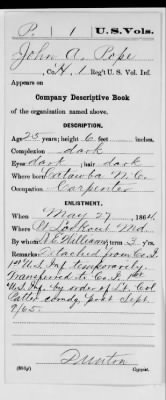 P. | 1 | U.S. Vols.
John A. Pope
, Co. H, 1 Reg't U. S. Vol. Inf.
Appears on
Company Descriptive Book
of the organization named above.
DESCRIPTION.
Age 25 years; height 6 feet inches.
Complexion dark
Eyes dark; hair dark
Where born Catawba N.C.
Occupation Carpenter
ENLISTMENT.
When May 27, 1864
Where Pt Lookout Md.
By whom Williams; term 3 y'rs.
Remarks: Detached from Co. I.
1st U.S. Inf. temporarily.
Transferred to Co. 1st
U.S. Inf. by order of Lt. Col
comdg. post Sept.
9/65.
Copyist.